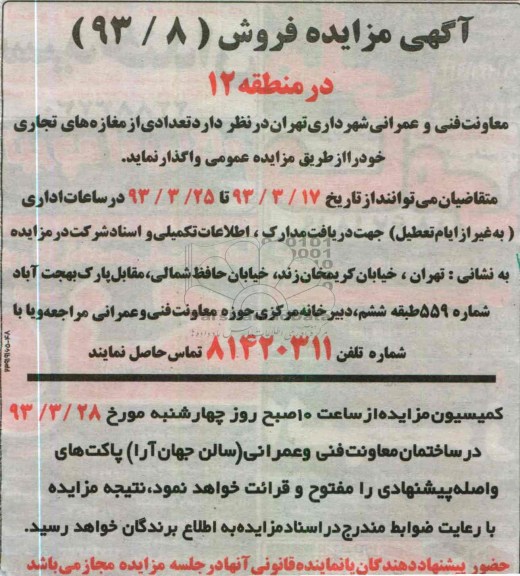 آگهی مزایده فروش ( ۸ / ۹۳ )
در منطقه ۱۲
معاونت فنی و عمرانی شهرداری تهران در نظر دارد تعدادی از مغازه های تجاری
خود را از طریق مزایده عمومی واگذار نماید.
متقاضیان می توانند از تاریخ ۱۷ / ۳ / ۹۳ تا ۲۵ / ۳ / ۹۳ در ساعات اداری
( به غیر از ایام تعطیل) جهت دریافت مدارک ، اطلاعات تکمیلی و اسناد شرکت در مزایده
به نشانی : تهران ، خیابان کریمخان زند، خیابان حافظ شمالی، مقابل پارک بهجت آباد
شماره ۵۵۹ طبقه ششم، دبیرخانه مرکزی حوزه معاونت فنی و عمرانی مراجعه و یا با
شماره تلفن ۸۱۴۲۰۳۱۱ تماس حاصل نمایند
کمیسیون مزایده از ساعت ۱۰ صبح روز چهارشنبه مورخ ۲۸ /۳/ ۹۳
در ساختمان معاونت فنی وعمرانی (سالن جهان آرا) پاکت های
واصله پیشنهادی را مفتوح و قرائت خواهد نمود، نتیجه مزایده
با رعایت ضوابط مندرج در اسناد مزایده به اطلاع برندگان خواهد رسید.
حضور پیشنهاد دهندگان یا نماینده قانونی آنها در جلسه مزایده مجاز می باشد